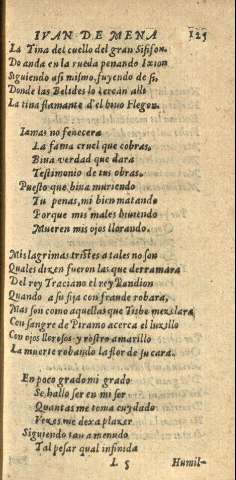 IVAN DE MENA 125
La Tina del cuello del gran Sisifon.
Do anda en la rueda penando Ixion
Siguiendo asi mismo, fuyendo de si,
Donde las Belides lo cercan alli
La tina flamante d'el biuo Flegon.
Iamas no fenecera
La fama cruel que cobras,
Biua verdad que dara
Testimonio de tus obras.
Puesto que biua muriendo
Tu penas, mi bien matando
Porque mis males biuiendo
Mueren mis ojos llorando.
Mis lagrimas tristes a tales no son
Quales dizen fueron las que derramara
Del rey Traciano el rey Pandion
Quando a su fija con fraude robara,
Mas son como aquellas que Tisbe mezclara
Con sangre de Piramo acerca el luzillo
Con ojos llorosos y rostro amarillo
La muerte robando la flor de su cara.
En poco grado mi grado
Se hallo ser en mi ser
Quantas me toma cuydado
Vezes me dexa plazer
Siguiendo tan a menudo
Tal pesar qual infinida
L 5 Humil-